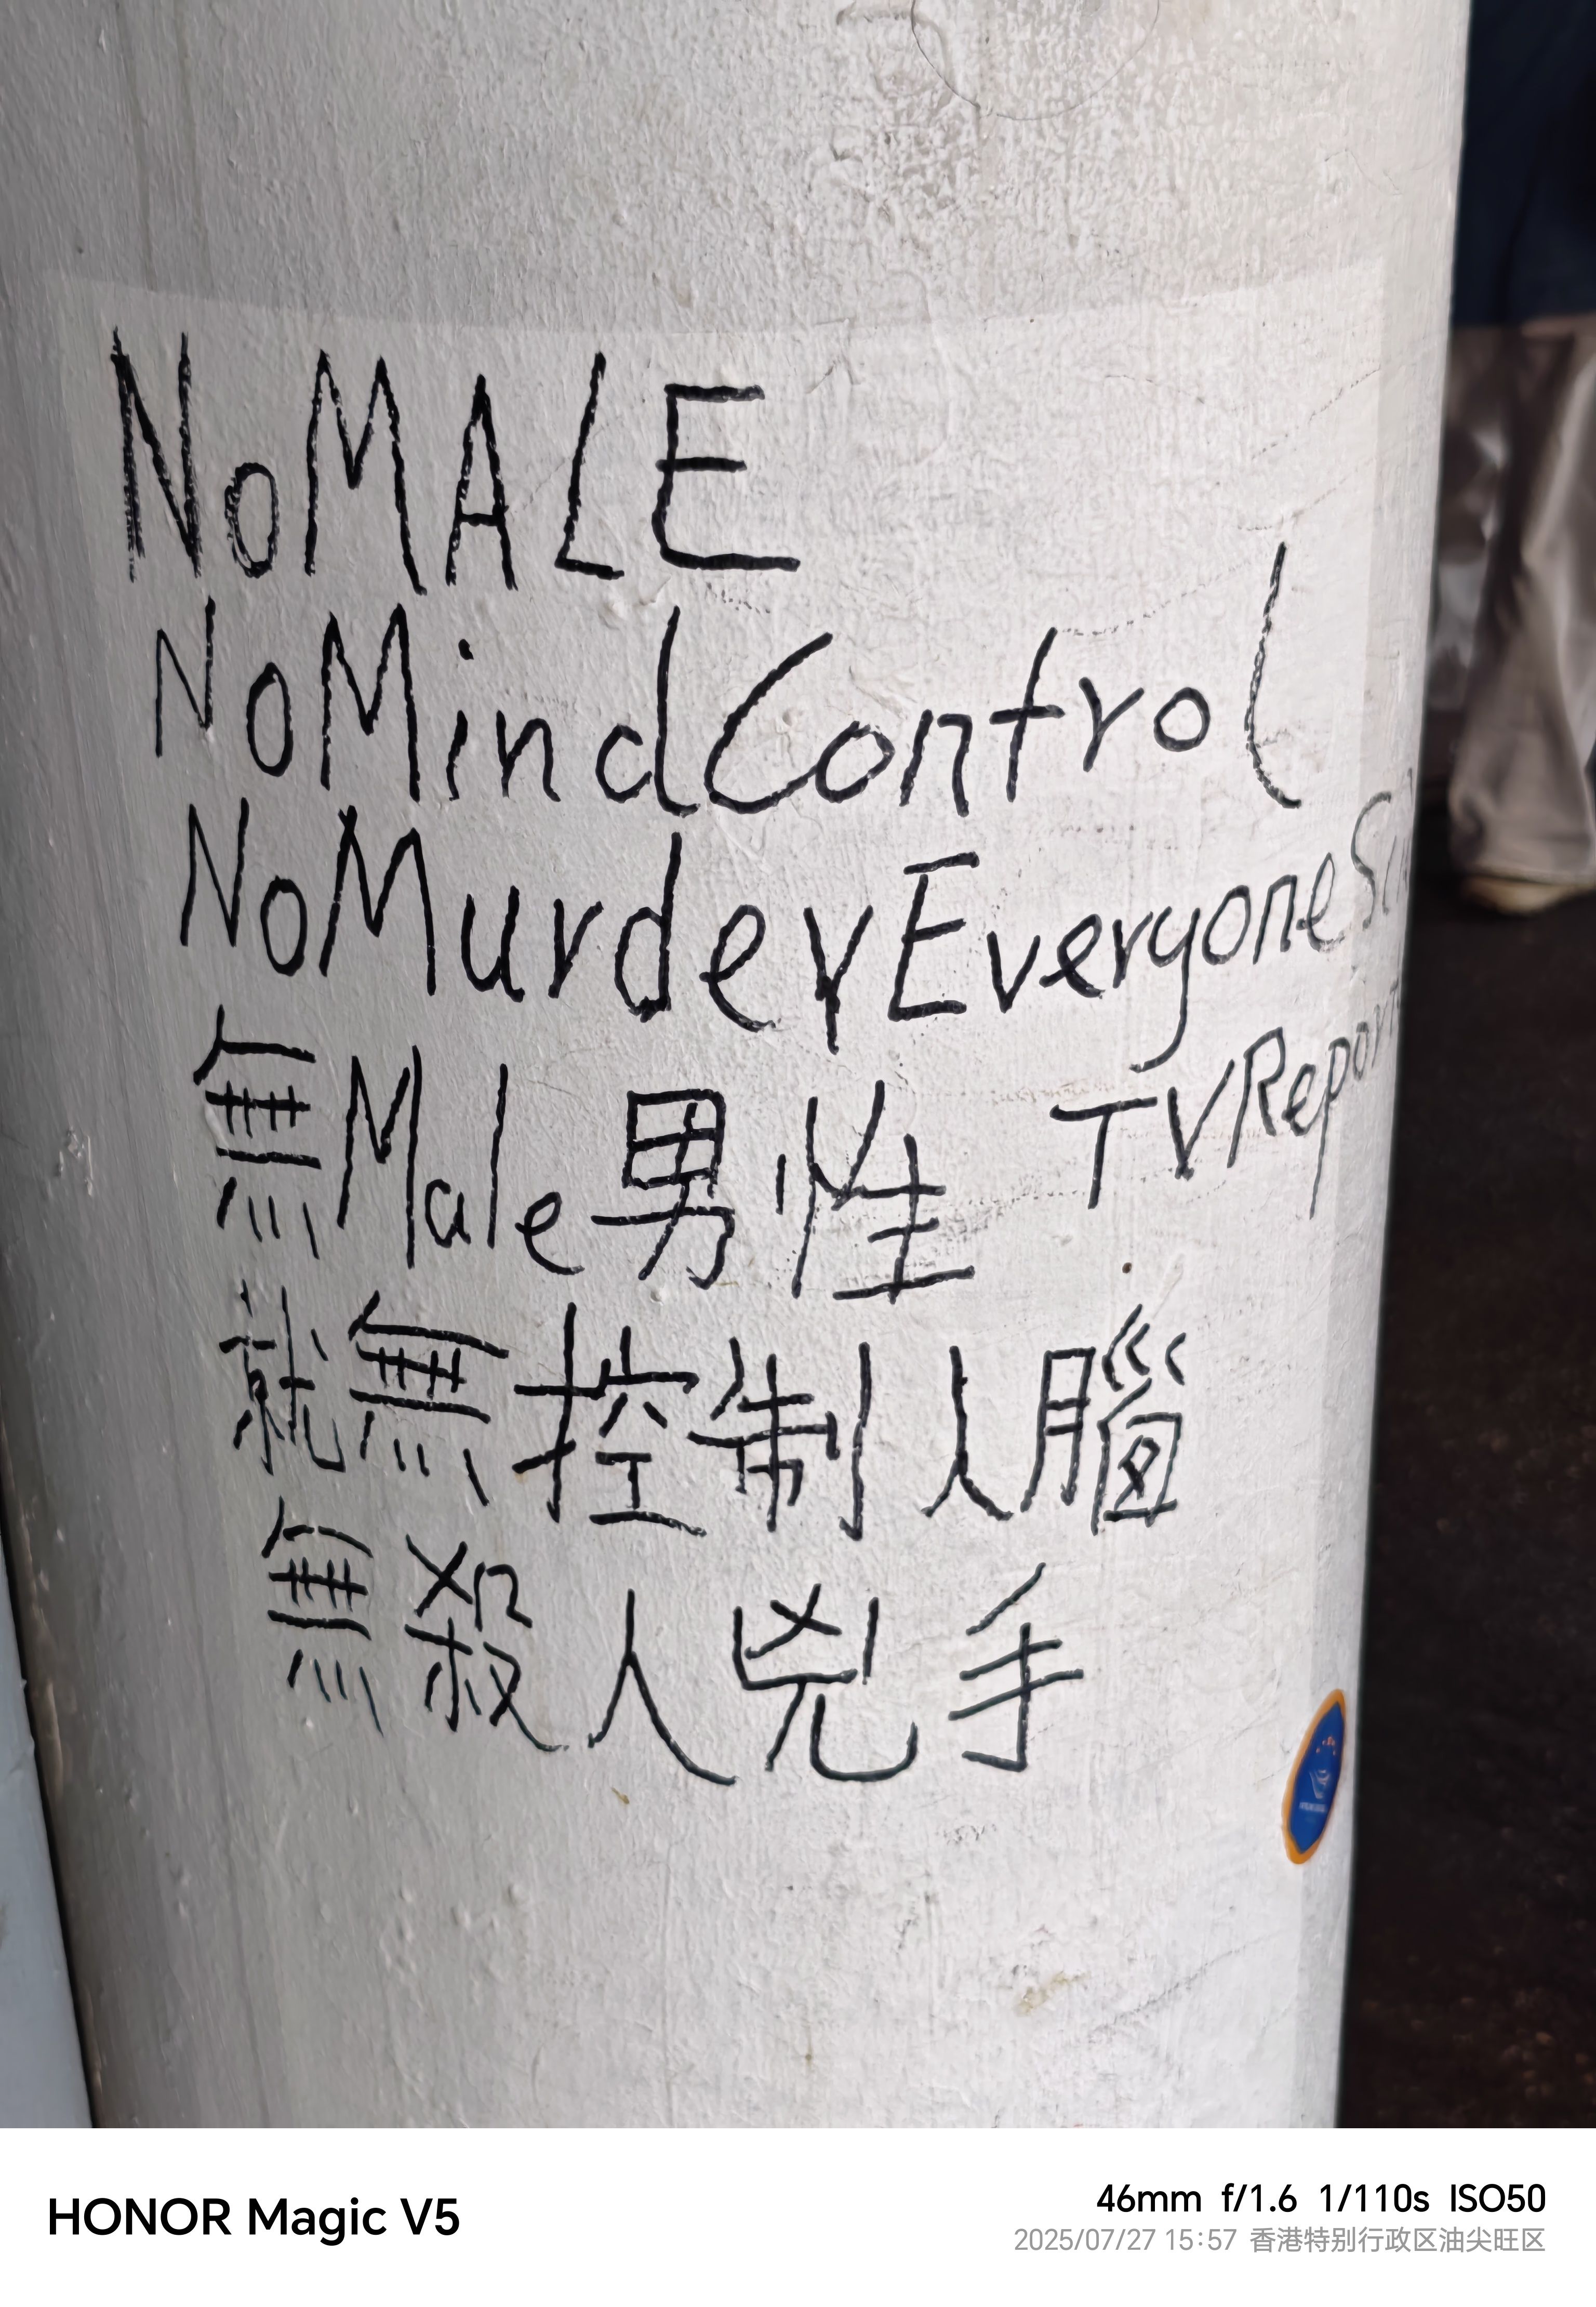 NoMALE
NoMindControl
NoMurderEveryone
TVRepor
無Male男性
就無控制人腦
無殺人兇手
HONOR Magic V5
46mm f/1.6 1/110s ISO50
2025/07/27 15:57 香港特别行政区油尖旺区